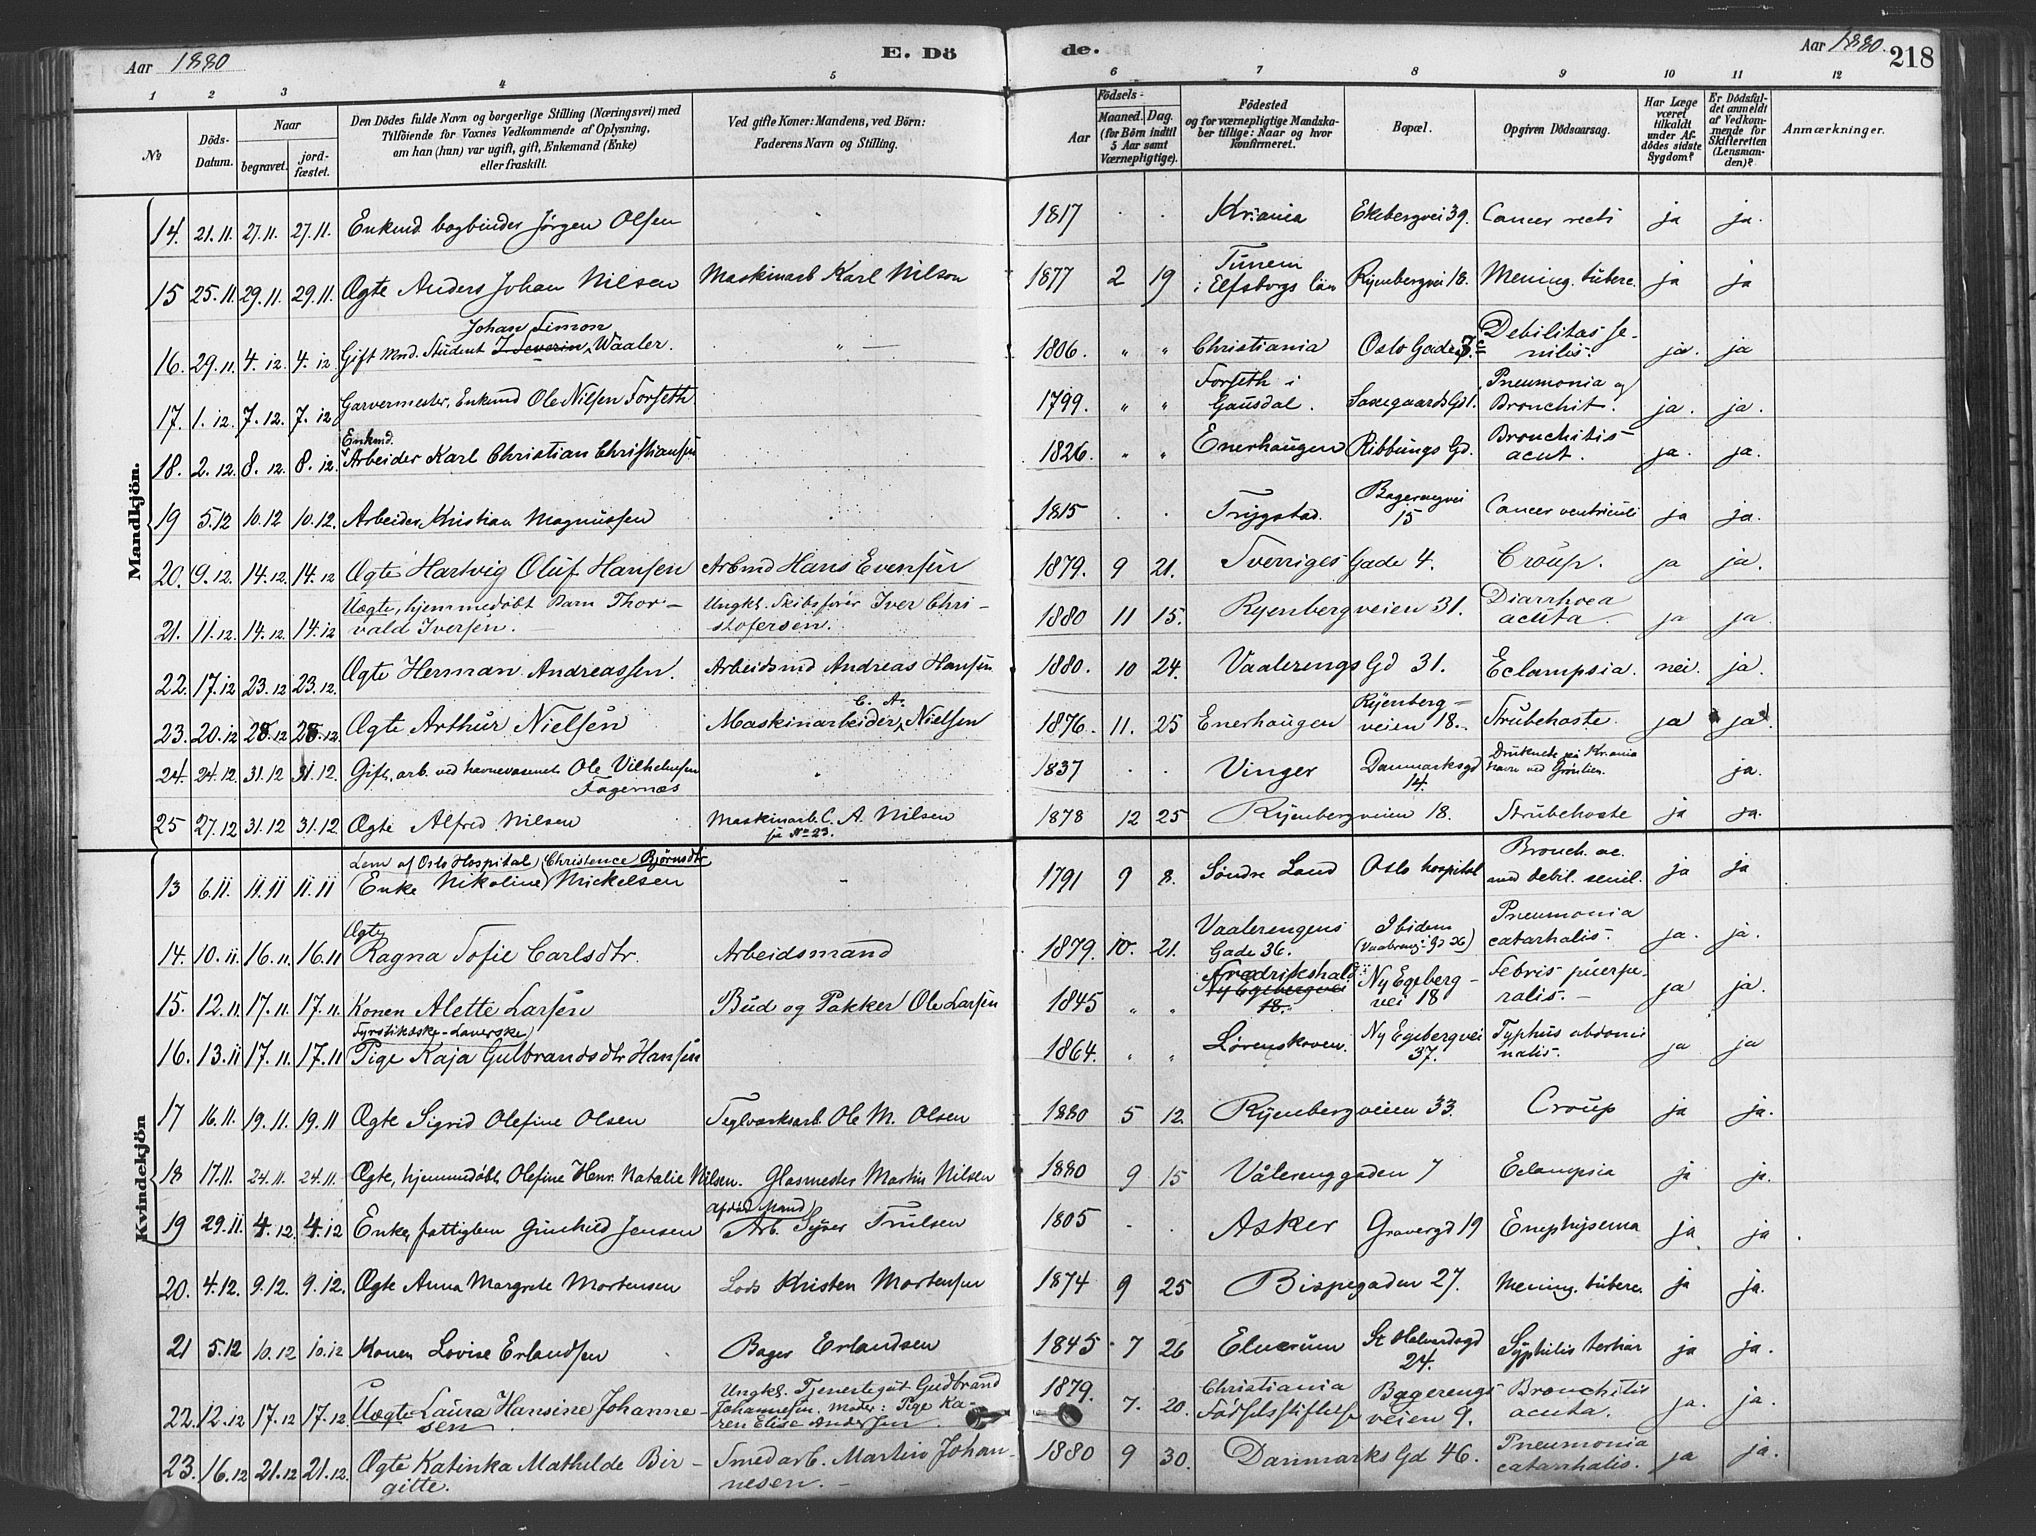 Aar 1880
E. Dö
de.
Aar 1880.
218
1 2 3 4 5 6 7 8 9 10 11 12
No
Döds-Datum.
Naar
begravet.
jord-fæstet.
Den Dödes fulde Navn og borgerlige Stilling (Næringsvei) med
Tilföiende for Voxnes Vedkommende af Oplysning,
om han (hun) var ugift, gift, Enkemand (Enke)
eller fraskilt.
Ved gifte Koner: Mandens, ved Börn:
Faderens Navn og Stilling.
Födsels-
Aar
Maaned. Dag.
(for Börn indtil
5 Aar samt
Værnepligtige).
Födested
og for værnepligtige Mandska-
ber tillige: Naar og hvor
konfirmeret.
Bopæl.
Opgiven Dödsaarsag.
Har Læge
været
tilkaldt
under Af-
dödes sidste
Sygdom?
Er Dödsfal-
det anmeldt
af Vedkom-
mende for
Skifteretten
(Lensman-
den)?
Anmærkninger.
Mandkjön.
14. 21.11. 27.11. 27.11. Enkmd. bogbinder Jörgen Olsen 1817 Kr.ania Ekebergvei 39. Cancer recti ja ja.
15 25.11. 29.11. 29.11. Ægte Anders Johan Nilsen Maskinarb Karl Nilson 1877 2 19 Tunem i Elfsborgs län Ryenbergvei 18. Mening. tuberc. ja ja
Johan Simon
16. 29.11. 4.12 4.12 Gift Mnd. Student J. Severin Waaler. " — 1806. " " Christiania Oslo Gade 7. Debilitas senilis. ja. ja
17. 1.12. 7.12. 7.12 Garvermester, Enkmd Ole Nilsen Forseth 1799. " " Forseth i Gausdal. Saxegaards Gd 1. Pneumonia og Bronchit. ja. ja.
Enkmd.
18. 2.12. 8.12. 8.12. Arbeider Karl Christian Christiansen 1826. " " Enerhaugen Ribbungs Gd. Bronchitis acut. ja. ja.
19 5.12 10.12 10.12. Arbeider Kristian Magnussen 1815 Trygstad. Bagerengvei 15 Cancer ventriculi ja ja.
20. 9.12. 14.12. 14.12 Ægte Hartvig Oluf Hansen Arbmd Hans Evensen 1879. 9 21. Sverriges Gade 4. Croup. ja ja.
21. 11.12. 14.12. 14.12 Uægte, hjemmedøbt Barn Thorvald Iversen. Ungkl. Skibsfører Iver Christofersen. 1880 11 15. Ryenbergveien 31. Diarrhoea acuta. ja ja.
22. 17.12 23.12 23.12. Ægte Herman Andreassen. Arbeidsmd Andreas Hansen 1880. 10 24. Vaalerengs Gd 31. Eclampsia. nei. ja.
C. A.
23. 20.12 28.12 28.12. Ægte Arthur Nielsen Maskinarbeider Nielsen 1876. 11. 25 Enerhaugen Ryenbergveien 18. Strubehoste. ja ja.
24. 24.12. 31.12 31.12. Gift, arb. ved havnevæsenet Ole Vilhelmsen Fagernæs " 1837 Vinger Danmarksgd 14. Druknede på Kr.ania havn ved Grønlien. ja.
25 27.12 31.12 31.12 Ægte Alfred Nilsen Maskinarb. C. A. Nilsen
på No 23. 1878 12 25 Ryenbergveien 18. Strubehoste ja ja.
Kvindekjön
Lem af Oslo Hospital Christence Björnsdtr
13 6.11. 11.11 11.11 Enke Nikoline Mickelsen - 1791 9 8. Söndre Land Oslo hospital Bronch. ac. med debil. senil. ja ja
Ægte
14. 10.11. 16.11. 16.11 Ragna Sofie Carlsdtr. Arbeidsmand 1879. 10. 21. Vaalerengens Gade 36. Ibidem (Vaalereng. Gd 36) Pneumonia catarhalis. ja. ja.
15. 12.11 17.11. 17.11. Konen Alette Larsen Bud og Pakker Ole Larsen 1845 " " Fredrikshald Ny Egebergvei 18. Ny Egebergvei 18 Febris puerperalis. ja ja.
16. 13.11 17.11. 17.11 Fyrstikæske-Laverske Pige Kaja Gulbrandsdtr Hansen 1864. " " Lørenskoven. Ny Egebergvei 37. Typhus abdominalis. ja ja
17 16.11. 19.11. 19.11 Ægte Sigrid Olefine Olsen Teglværksarb. Ole M. Olsen 1880 5 12. Ryenbergveien 33. Croup ja ja.
18 17.11. 24.11. 24.11. Ægte, hjemmedøbt Olefine Henr. Natalie Nilsen. Glasmester Martin Nilsen 1880 9 15 Vålerenggaden 7 Eclampsia ja ja.
19 29.11 4.12. 4.12 Enke, fattiglem Gunhild Jensen Afdød Mand Arb. Syver Trulsen 1805 Asker Gravergd 19 Emphysema ja ja
20. 4.12. 9.12. 9.12. Ægte Anna Margrete Mortensen Lods Kristen Mortensen 1874 9 25 Bispegaden 27. Mening. tuberc. ja ja.
21 5.12 10.12 10.12 Konen Lovise Erlandsen Bager Erlandsen 1845 7 26 Elverum St Halvardsgd 24. Syphilis tertiar ja ja.
22. 12.12 17.12 17.12. Uægte Laura Hansine Johannesen Ungkl. Tjenestegut Gudbrand Johannesen. Moter: Pige Karen Elise Andersen 1879. 7. 20. Christiania Fødselsstiftelse Bagerengsveien 9. Bronchitis acuta. ja. ja.
23. 16.12 21.12 21.12. Ægte Katinka Mathilde Birgitte. Smedarb. Martin Johannesen. 1880 9 30. Danmarks Gd 46. Pneumonia catarrhalis. ja ja.